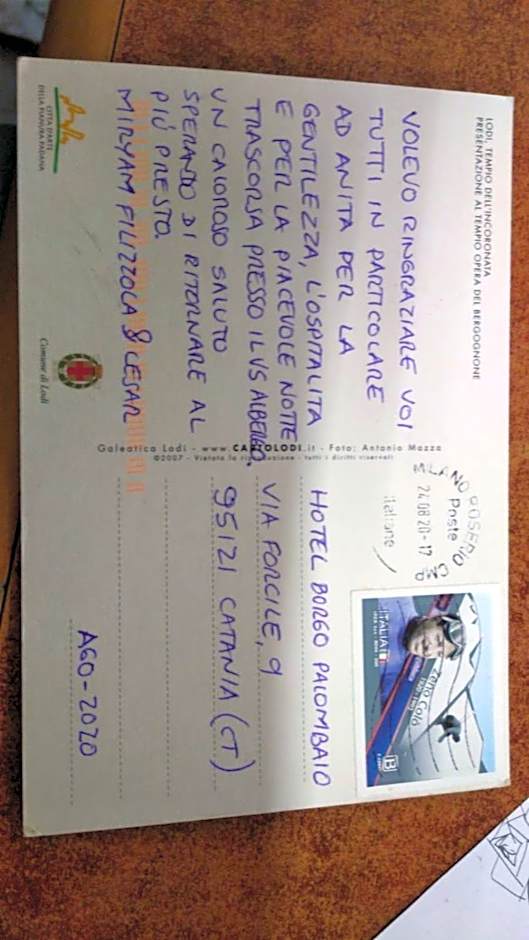 LODI, TEMPIO DELL'INCORONATA
PRESENTAZIONE AL TEMPIO OPERA DEL BERGOGNONE
VOLEVO RINGRAZIARE VOI
TUTTI IN PARTICOLARE
AD ANITA PER LA
GENTILEZZA, L'OSPITALITA
E PER LA PIACEVOLE NOTTE
TRASCORSA PRESSO IL VS ALBERGO,
UN CALOROSO SALUTO
SPERANDO DI RITORNARE AL
PIÙ PRESTO.
MIRYAM FILIZZOLA & CESAR
CITTÀ D'ARTE
DELLA PIANURA PADANA
Comune di Lodi
Galeatica Lodi - www.CARTOLODI.it - Foto: Antonio Mazza
©2007 - Vietata la riproduzione - tutti i diritti riservati
MILANO ROSERIO CMP
Poste
24.08.20-17
italiane
ITALIA
Zeno Colò
B
HOTEL BORGO PALOMBAIO
VIA FORCILE, 9
95121 CATANIA (CT)
AGO-2020